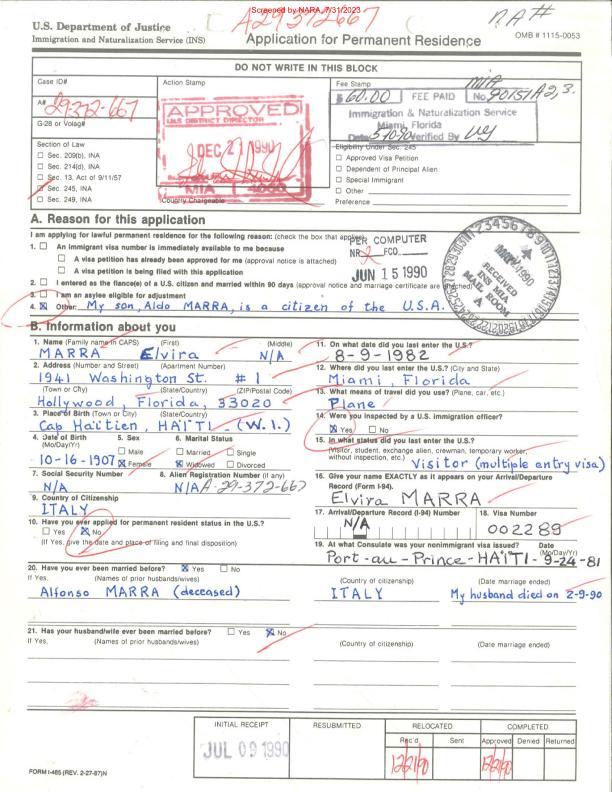 Screened by NARA, 7/31/2023
A29372667
NA#
U.S. Department of Justice
Immigration and Naturalization Service (INS)
Application for Permanent Residence
OMB # 1115-0053
DO NOT WRITE IN THIS BLOCK
Case ID#
Action Stamp
Fee Stamp
A#
29-372-667
G-28 or Volag#
Section of Law
☐ Sec. 209(b), INA
☐ Sec. 214(d), INA
☐ Sec. 13, Act of 9/11/57
☐ Sec. 245, INA
☐ Sec. 249, INA
APPROVED
U.S. DISTRICT DIRECTOR
DEC 21 1990
MIA 4000
Country Chargeable
$60.00 FEE PAID No.
Immigration & Naturalization Service
Miami, Florida
Date Verified By
Eligibility Under Sec. 245
☐ Approved Visa Petition
☐ Dependent of Principal Alien
☐ Special Immigrant
☐ Other
Preference
A. Reason for this application
I am applying for lawful permanent residence for the following reason: (check the box that applies)
1. ☐ An immigrant visa number is immediately available to me because
☐ A visa petition has already been approved for me (approval notice is attached)
☐ A visa petition is being filed with this application
2. ☐ I entered as the fiance(e) of a U.S. citizen and married within 90 days (approval notice and marriage certificate are attached)
3. ☐ I am an asylee eligible for adjustment
4. ☒ Other: My son, Aldo MARRA, is a citizen of the U.S.A.
PER COMPUTER
NR FCO
JUN 15 1990
RECEIVED
INS MIA
MAIL ROOM
B. Information about you
1. Name (Family name in CAPS) (First) (Middle)
MARRA Elvira N/A
2. Address (Number and Street) (Apartment Number)
1941 Washington St. # 1
(Town or City) (State/Country) (ZIP/Postal Code)
Hollywood, Florida, 33020
3. Place of Birth (Town or City) (State/Country)
Cap Haïtien, HAÏTI - (W.I.)
4. Date of Birth (Mo/Day/Yr)
10-16-1907
5. Sex
☐ Male
☒ Female
6. Marital Status
☐ Married ☐ Single
☒ Widowed ☐ Divorced
7. Social Security Number
N/A
8. Alien Registration Number (if any)
N/A A-29-372-667
9. Country of Citizenship
ITALY
10. Have you ever applied for permanent resident status in the U.S.?
☐ Yes ☒ No
(If Yes, give the date and place of filing and final disposition)
11. On what date did you last enter the U.S.?
8-9-1982
12. Where did you last enter the U.S.? (City and State)
Miami, Florida
13. What means of travel did you use? (Plane, car, etc.)
Plane
14. Were you inspected by a U.S. immigration officer?
☒ Yes ☐ No
15. In what status did you last enter the U.S.?
(Visitor, student, exchange alien, crewman, temporary worker, without inspection, etc.)
Visitor (multiple entry visa)
16. Give your name EXACTLY as it appears on your Arrival/Departure Record (Form I-94).
Elvira MARRA
17. Arrival/Departure Record (I-94) Number
N/A
18. Visa Number
002289
19. At what Consulate was your nonimmigrant visa issued? Date (Mo/Day/Yr)
Port-au-Prince-HAÏTI-9-24-81
20. Have you ever been married before? ☒ Yes ☐ No
If Yes, (Names of prior husbands/wives) (Country of citizenship) (Date marriage ended)
Alfonso MARRA (deceased) ITALY My husband died on 2-9-90
21. Has your husband/wife ever been married before? ☐ Yes ☒ No
If Yes, (Names of prior husbands/wives) (Country of citizenship) (Date marriage ended)
INITIAL RECEIPT
JUL 09 1990
RESUBMITTED
RELOCATED
Rec'd Sent
12/21/90
COMPLETED
Approved Denied Returned
12/21/90
FORM I-485 (REV. 2-27-87)N